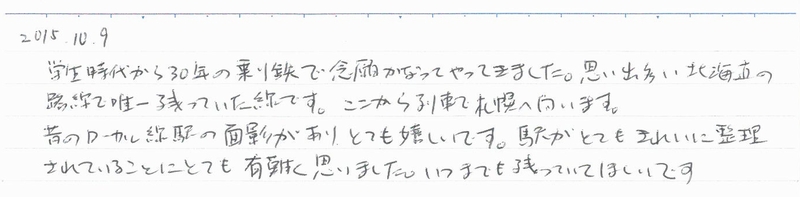 2015.10.9
学生時代から30年の乗り鉄で念願かなってやってきました。思い出多い北海道の
路線で唯一残っていた線です。ここから列車で札幌へ向います。
昔のローカル線駅の面影がありとても嬉しいです。駅がとてもきれいに整理
されていることにとても有難く思いました。いつまでも残っていてほしいです